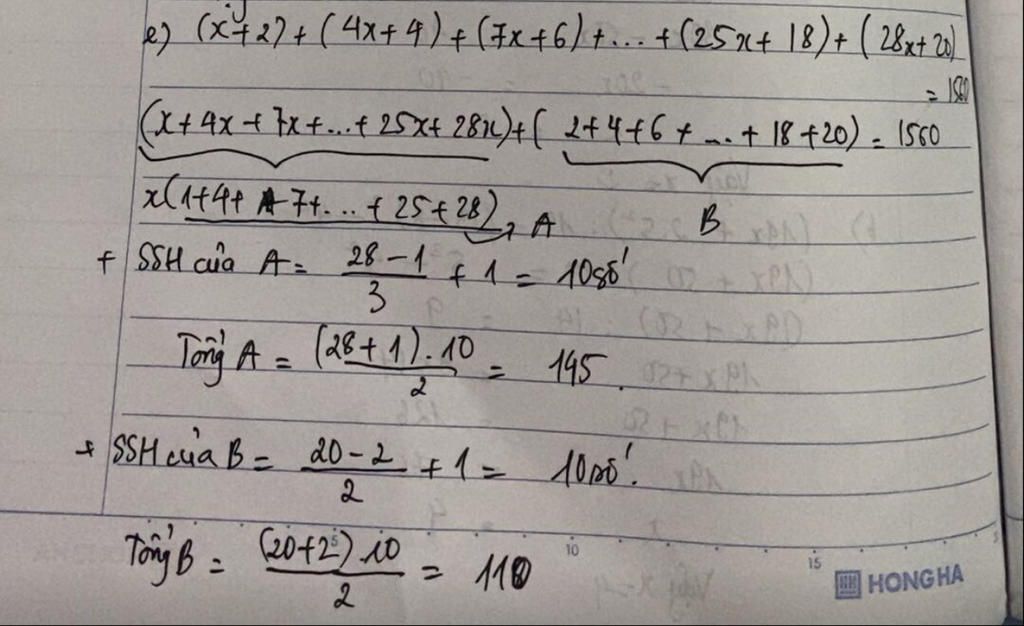 e) (x+2) + (4x+4) + (7x+6) + ... + (25x+ 18) + (28x+20)
= 1560
(x+4x+7x+...+25x+28x)+( 2+4+6+...+18+20) = 1560
x(1+4+7+...+25+28) A
B
+ SSH của A = (28 - 1)/3 + 1 = 10 số
Tổng A = ((28+1).10)/2 = 145.
+ SSH của B = (20 - 2)/2 + 1 = 10 số.
Tổng B = ((20+2).10)/2 = 110
5 10 15
HONG HA